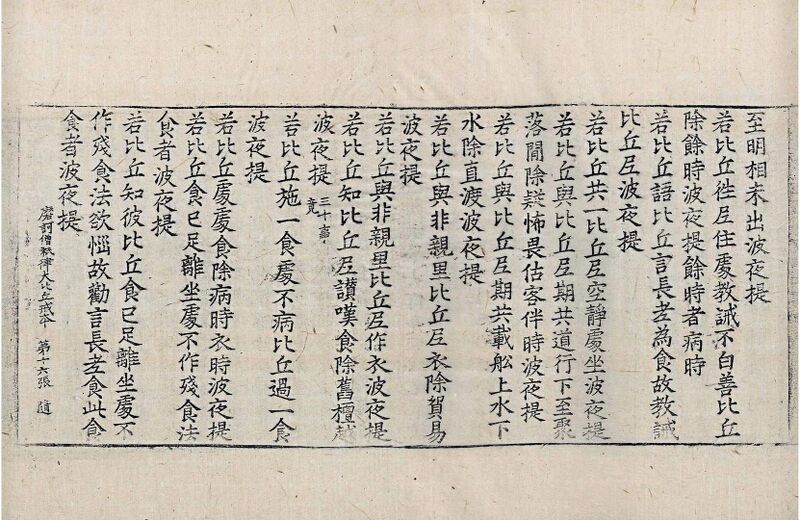 至明相未出波夜提
若比丘徃𡰱住處教誡不白善比丘
除餘時波夜提餘時者病時
若比丘語比丘言長老為食故教誡
比丘𡰱波夜提
若比丘共一比丘𡰱空靜處坐波夜提
若比丘與比丘𡰱期共道行下至聚
落閒除疑怖畏估客伴時波夜提
若比丘與比丘𡰱期共載舩上水下
水除直渡波夜提
若比丘與非親里比丘𡰱衣除貿易
波夜提
若比丘與非親里比丘𡰱作衣波夜提
若比丘知比丘𡰱讃嘆食除舊檀越
波夜提 三十事竟
若比丘施一食處不病比丘過一食
波夜提
若比丘處處食除病時衣時波夜提
若比丘食已足離坐處不作殘食法
食者波夜提
若比丘知彼比丘食已足離坐處不
作殘食法欲惱故勸言長老食此食
食者波夜提
摩訶僧祇律大比丘戒本 第十六張 隨